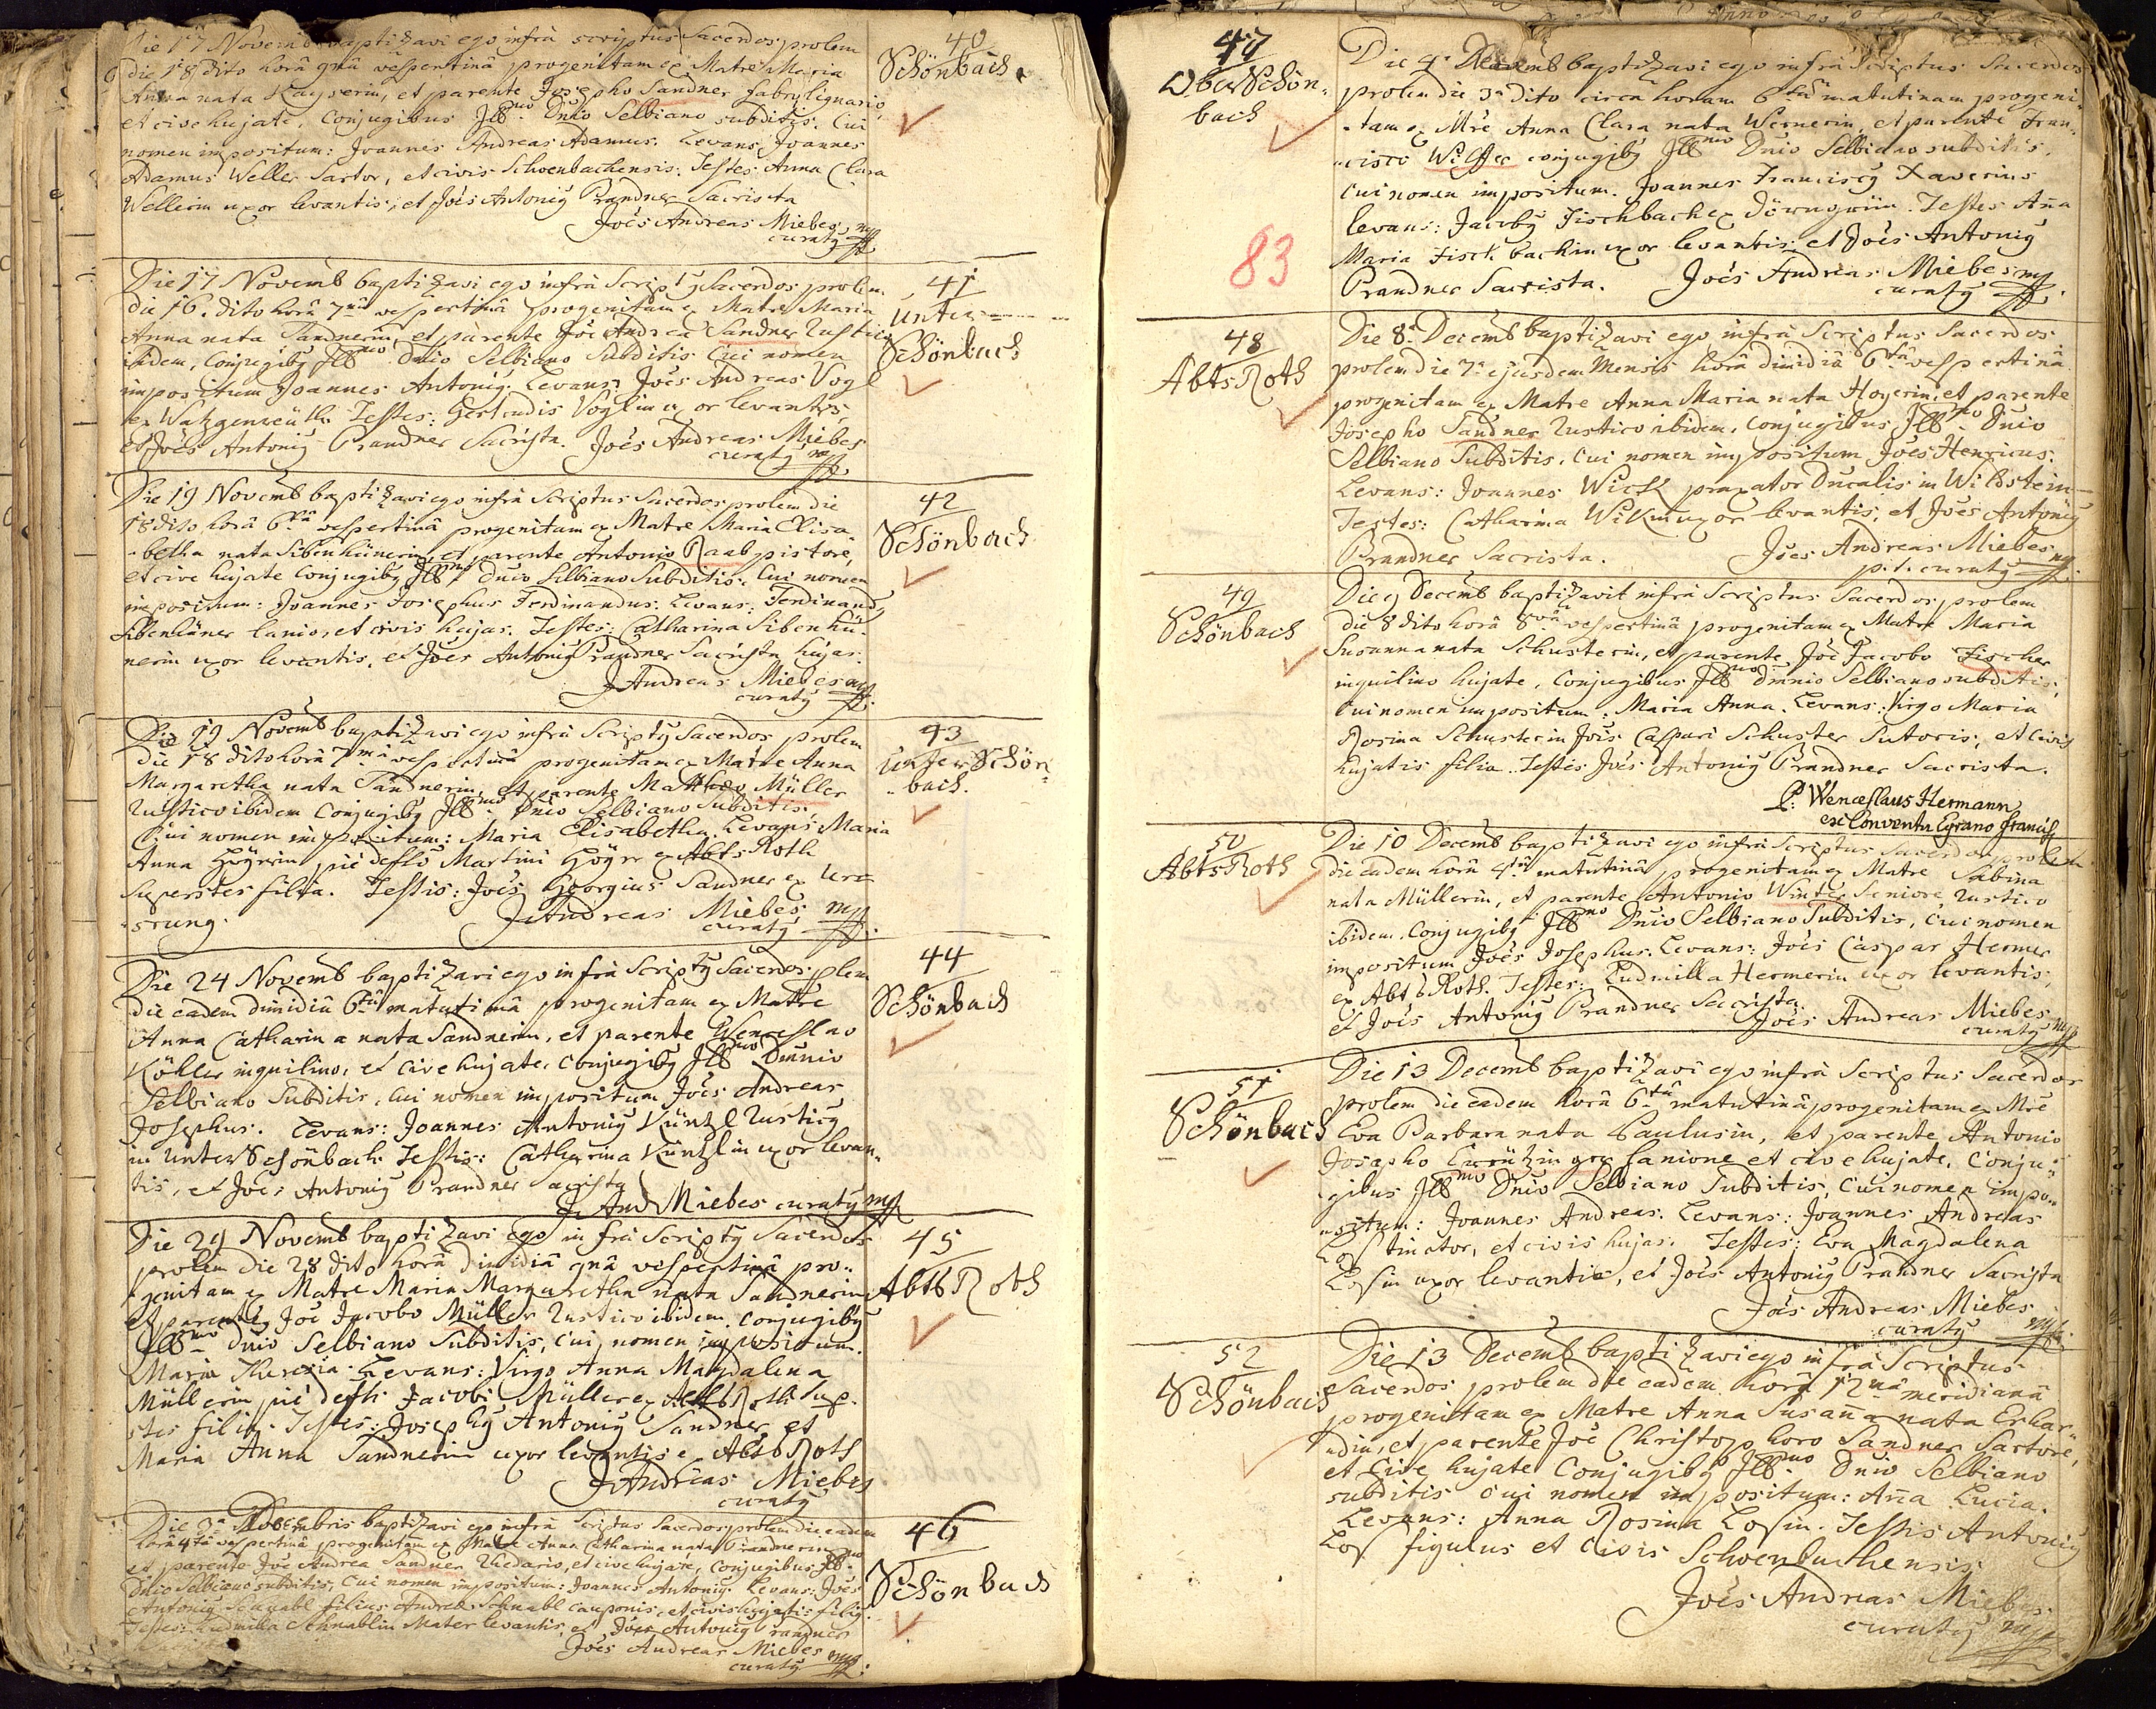 40
Schönbach
Die 17 Novemb baptizavi ego infrà scriptus Sacerdos prolem
die 18 dito horâ 9nâ vespertinâ progenitam ex Matre Maria
Anna nata Kayserin, et parente Josepho Sandner fabro lignario,
et cive hujate, Conjugibus Ill:mo Dnio Selbiano subditis. Cui
nomen impositum: Joannes Andreas Adamus. Levans Joannes
Adamus Weller Sartor, et civis Schoenbachensis. Testes Anna Clara
Wellerin uxor levantis, et Joes Antonig Prandner Sacrista
Joes Andreas Miebes mp
curatg
41
Unter
Schönbach
Die 17 Novemb baptizavi ego infrà Scriptg Sacerdos prolem
die 16. dito horâ 7mâ vespertinâ progenitam ex Matre Maria
Anna nata Sandnerin, et parente Joe Andrea Sandner Rustico
ibidem, Conjugibg Ill:mo Dnio Selbiano Subditis Cui nomen
impositum Joannes Antonig. Levans: Joes Andreas Vogl
ex Watzgenreuth. Testes: Gertrudis Voglin uxor levantis,
et Joes Antonig Prandner Sacrista. Joes Andreas Miebes
curatg mp
42
Schönbach
Die 19 Novemb baptizavi ego infrà Scriptus Sacerdos prolem die
18 dito horâ 6tâ vespertinâ progenitam ex Matre Maria Elisa-
betha nata Sibenhünerin, et parente Antonio Raab pistore,
et cive hujate Conjugibg Ill:mo Dnio Selbiano Subditis. Cui nomen
impositum: Joannes Josephus Ferdinandus. Levans: Ferdinandg
Sibenhüner lanio, et civis hujas. Testes: Catharina Sibenhü-
nerin uxor levantis, et Joes Antonig Prandner Sacrista hujas.
J Andreas Miebes mp
curatg
43
Unter Schön-
bach.
Die 19 Novemb baptizavi ego infrà Scriptg Sacerdos prolem
die 18 dito horâ 7mâ vespertinâ progenitam ex Matre Anna
Margaretha nata Sandnerin, et parente Matthaeo Müller
Rustico ibidem Conjugibg Ill:mo Dnio Selbiano Subditis.
Cui nomen impositum: Maria Elisabetha. Levans: Maria
Anna Höyerin piè defti Martini Höyer ex Abts Roth
Superstes filia. Testis: Joes Georgius Sandner ex Ur-
sprung. J Andreas Miebes mp
curatg
44
Schönbach
Die 24 Novemb baptizavi ego infrà Scriptg Sacerdos plem
die eadem dimidiâ 6tâ matutinâ progenitam ex Matre
Anna Catharina nata Sandnerin, et parente Wenceslao
Köhler inquilino, et cive hujate, Conjugibg Ill:mo Dmnio
Selbiano Subditis, Cui nomen impositum Joes Andreas
Josephus. Levans: Joannes Antonig Küntzl Rusticg
in Unter Schönbach. Testis: Catharina Küntzlin uxor levan-
tis, et Joes Antonig Prandner Sacrista
J. And Miebes curatg mp
45
Abts Roth
Die 29 Novemb baptizavi Ego infrà Scriptg Sacerdos
prolem die 28 dito horâ dimidiâ 9nâ vespertinâ pro-
genitam ex Matre Maria Margaretha nata Sandnerin
et parente Joe Jacobo Müller Rustico ibidem. Conjugibg
Ill:mo Dnio Selbiano Subditis, Cui nomen impositum.
Maria Theresia. Levans: Virgo Anna Magdalena
Müllerin piè defti Jacobi Müller ex Abts Roth sup-
stes filia. Testes: Josephg Antonig Sandner, et
Maria Anna Sandnerin uxor levantis ex Abts Roth
J Andreas Miebes
curatg
46
Schönbach
Die 3a Decembris baptizavi ego infrà Scriptus Sacerdos prolem die eadem
horâ 4tâ vespertinâ progenitam ex Matre Anna Catharina nata Prandnerin
et parente Joe Andrea Sandner Rhedario, et cive hujate, Conjugibus Ill:mo
Dnio Selbiano subditis, Cui nomen impositum: Joannes Antonig. Levans: Joes
Antonig Schnabl filius Andreae Schnabl cauponis, et civis hujatis filig.
Testes: Ludmilla Schnablin Mater levantis, et Joes Antonig Prandner
Joes Andreas Miebes mp
curatg
47
Ober Schön-
bach
83
Die 4. Decemb baptizavi ego infrà Scriptus Sacerdos
prolem die 3a dito circa horam 6tam matutinam progeni-
tam ex Mre Anna Clara nata Wernerin, et parente Fran-
cisco Wilffer conjugibg Ill:mo Dnio Selbiano subditis.
Cui nomen impositum. Joannes Franciscg Xaverius
levans: Jacobg Fischbach ex Dörngrün. Testes Aña
Maria Fischbachin uxor levantis et Joes Antonig
Prandner Sacrista. Joes Andreas Miebes mp
curatg
48
Abts Roth
Die 8. Decemb baptizavi ego infrà Scriptus Sacerdos
prolem die 7. ejusdem Mensis horâ dimidiâ 6tâ vespertinâ
progenitam ex Matre Anna Maria nata Hoyerin, et parente
Josepho Sandner Rustico ibidem, Conjugibus Ill:mo Dnio
Selbiano Subditis, Cui nomen impositum Joes Henricus.
Levans: Joannes Wick praxator Ducalis in Wildstein
Testes: Catharina Wikin uxor levantis, et Joes Antonig
Prandner Sacrista. Joes Andreas Miebes mp
p.t. curatg
49
Schönbach
Die 9 Decemb baptizavit infrà Scriptus Sacerdos prolem
die 8 dito horâ 8vâ vespertinâ progenitam ex Matre Maria
Susanna nata Schusterin, et parente Joe Jacobo Fischer
inquilino hujate, Conjugibus Ill:mo Dmnio Selbiano subditis,
Cui nomen impositum: Maria Anna. Levans: Virgo Maria
Rosina Schusterin Jois Caspari Schuster Sutoris, et Civis
hujatis filia. Testis Joes Antonig Prandner Sacrista.
P: Wenceslaus Hermann
ex Conventu Egrano Francis
50
Abts Roth
Die 10 Decemb baptizavi ego infrà Scriptus Sacerdos prolem
die eadem horâ 4tâ matutinâ progenitam ex Matre Sabina
nata Müllerin, et parente Antonio Winter Seniore Rustico
ibidem. Conjugibg Ill:mo Dnio Selbiano Subditis, Cui nomen
impositum Joes Josephus. Levans: Joes Caspar Hermer
ex Abts Roth. Testes: Ludmilla Hermerin uxor levantis,
et Joes Antonig Prandner Sacrista.
Joes Andreas Miebes
curatg mp
51
Schönbach
Die 13 Decemb baptizavi ego infrà Scriptus Sacerdos
prolem die eadem horâ 6tâ matutinâ progenitam ex Mre
Eva Barbara nata Paulusin, et parente Antonio
Josepho lanione et cive hujate, Conju-
gibus Ill:mo Dnio Selbiano Subditis, Cui nomen impo-
situm: Joannes Andreas. Levans: Joannes Andreas
Los tinctor, et civis hujas. Testes: Eva Magdalena
Losin uxor levantis, et Joes Antonig Prandner Sacrista
Joes Andreas Miebes
curatg mp
52
Schönbach
Die 13 Decemb baptizavi ego infrà Scriptus
Sacerdos prolem die eadem horâ 12mâ meridianâ
progenitam ex Matre Anna Susaña nata Erhar-
din, et parente Joe Christophoro Sandner Sartore,
et Cive hujate Conjugibg Ill:mo Dnio Selbiano
subditis cui nomen impositum: Aña Lucia.
Levans: Anna Rosina Losin. Testis Antonig
Los figulus et civis Schoenbachensis
Joes Andreas Miebes
curatg mp